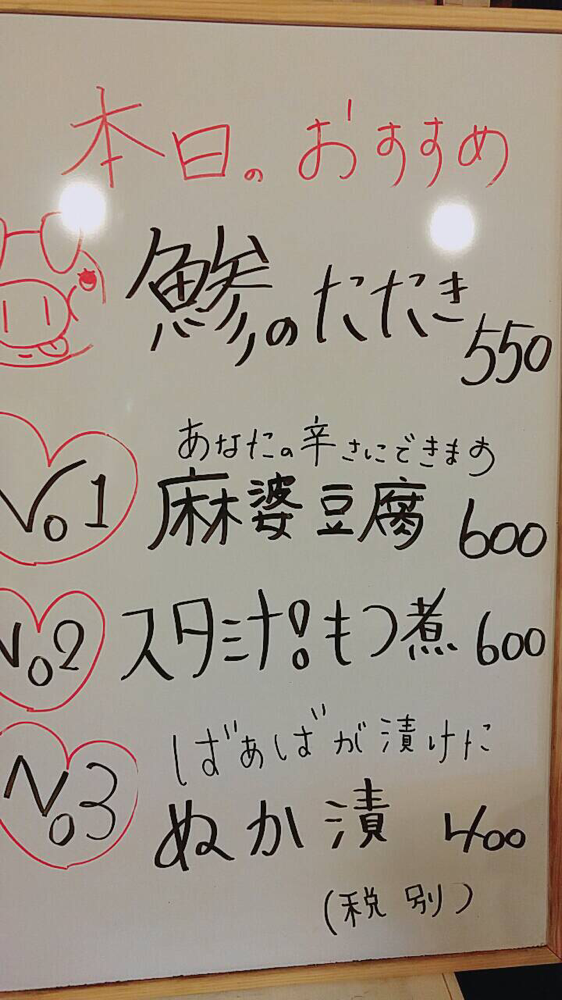 本日のおすすめ
鯵のたたき 550
あなたの辛さにできます
No1 麻婆豆腐 600
No2 スタミナ!もつ煮 600
ばあばが漬けた
No3 ぬか漬 400
(税別)